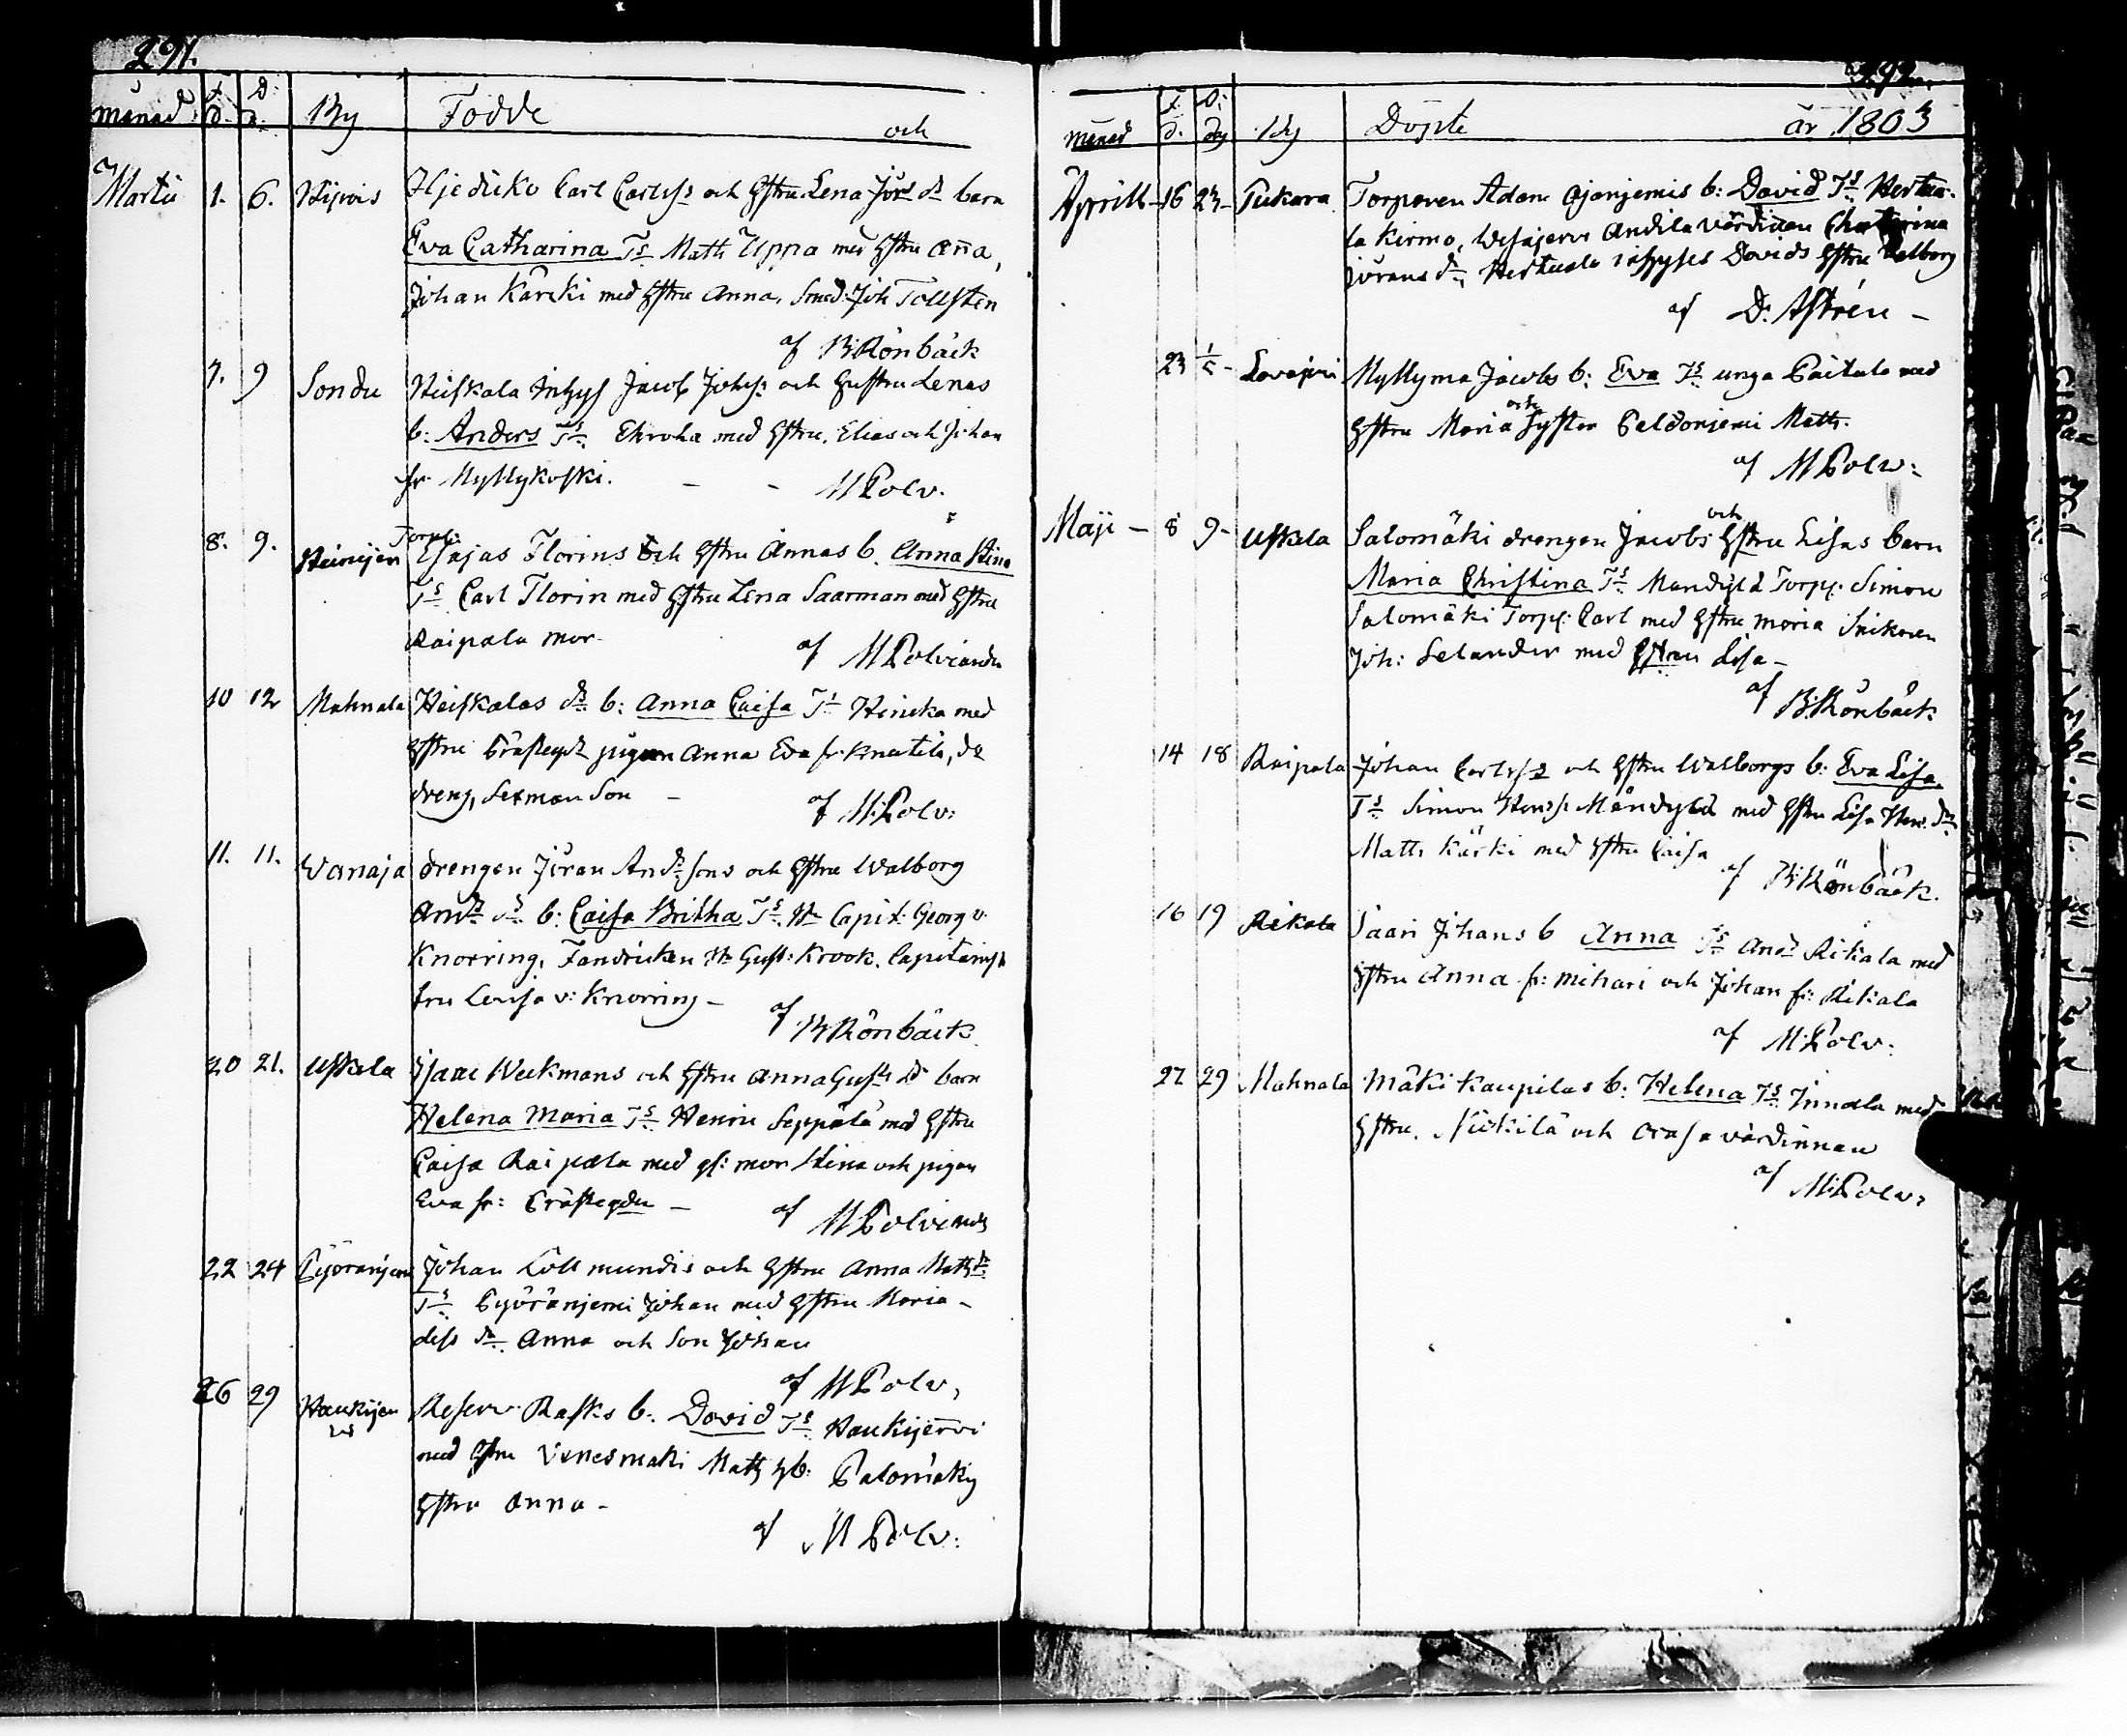 291.
månad f. d. D: d. By Födde och
Martii 1. 6. Carl Carlss: och hstru Lena Jörs dr barn
Eva Catharina Ts Matts Uppa med hstru Anna,
Johan Kärcki med hstru Anna, Smed: Joh Tollsten
af B:Rönbäck
7. 9 Sondu Heiskala inhys Jacob Johss: och hustru Lenas
b: Anders Ts med hstru, Elias och Johan
fr. Myllykoski. - - M Polv.
8. 9. Heinijen Torp: Esajas Florins och hstru Annas b. Anna Stina
Ts Carl Florin med hstru Lena Saarman med hstru
Raipala mor. af M Polviander
10 12 Mahnala Heiskalas dr b: Anna Caisa Ts med
hstru pigan Anna Eva fr.
dreng, Son - af M:Polv:
11. 11. Wanaja drengen Jöran Andrsons och hstru Walborg
Andrs dr b: Caisa Britha Ts Hr Capit: Georg v.
Knorring, Fendricken Hr Gust: Krook, Capitainsk
fru Lovisa v: Knorring -
af B Rönbäck
20 21. Uskela Isaac Weckmans och hstru Anna Gusts dr barn
Helena Maria Ts Henric Seppälä med hstru
Caisa Raipala med gl: mor Stina och pigan
Eva fr: - af M Polviander
22 24 Pyöränjemi Johan Collmundis och hstru Anna Matts dr
Ts Pyöränjemi Johan med hstru Maria -
dess dr Anna och Son Johan
af M Polv,
26 29 Haukijer Reserv Rasks b: David Ts Haukijervi
med hstru Venesmäki Matts hb: Palomäki
hstru Anna -
af M Polv:
292.
månad f. d. D: dg By Döpte år 1803
Aprill - 16 23 - Torparen Adam b: David Ts Hertua-
la Kirmo, Andila värdinan Chatarina
Jörans dr, Hertuala inhyses Davids hstru Valborg
af D: Astrén -
23 1/5 - Myllymä Jacobs b: Eva Ts unga med
hstru Maria och Syster Peldonjemi Matts.
af M Polv:
Maji - 8 9 - Uskela Salomäki drengen Jacobs och hstru Lisas barn
Maria Christina Ts Torp: Simon
Salomäki Torp: Carl med hstru Maria
Joh: Selander med hstrun Lisa -
af B:Rönbäck
14 18 Raipala Johan Carlss och hstru Walborgs b: Eva Lisa
Ts Simon Henrs. med hstru Lisa Henr. dr
Matts Kärki med hstru Caisa af B:Rönbäck.
16 19 Rikala Saari Johans b Anna Ts And Rikala med
hstru Anna fr: Mihari och Johan fr: Rikala
af M:Polv:
27 29 Mahnala Mäki Kaupilas b: Helena Ts Innala med
hstru. och värdinnan
af M:Polv: